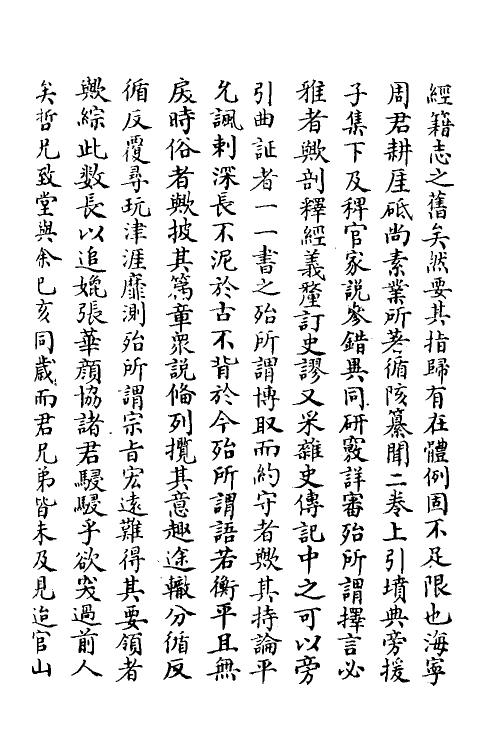 經籍志之舊矣然要其指歸有在體例固不足限也海寧
周君耕厓砥尚素業所著循陔纂聞二卷上引墳典旁援
子集下及稗官家說參錯異同研覈詳審殆所謂擇言必
雅者歟剖釋經義釐訂史謬又采雜史傳記中之可以旁
引曲証者一一書之殆所謂博取而約守者歟其持論平
允諷刺深長不泥於古不背於今殆所謂語若衡平且無
戾時俗者歟披其篇章眾說偹列攬其意趣途轍分循反
循反覆尋玩津涯靡測殆所謂宗旨宏遠難得其要領者
歟綜此数長以追媲張華顏協諸君駸駸乎欲突過前人
矣哲兄致堂與余己亥同歲而君兄弟皆未及見迨官山